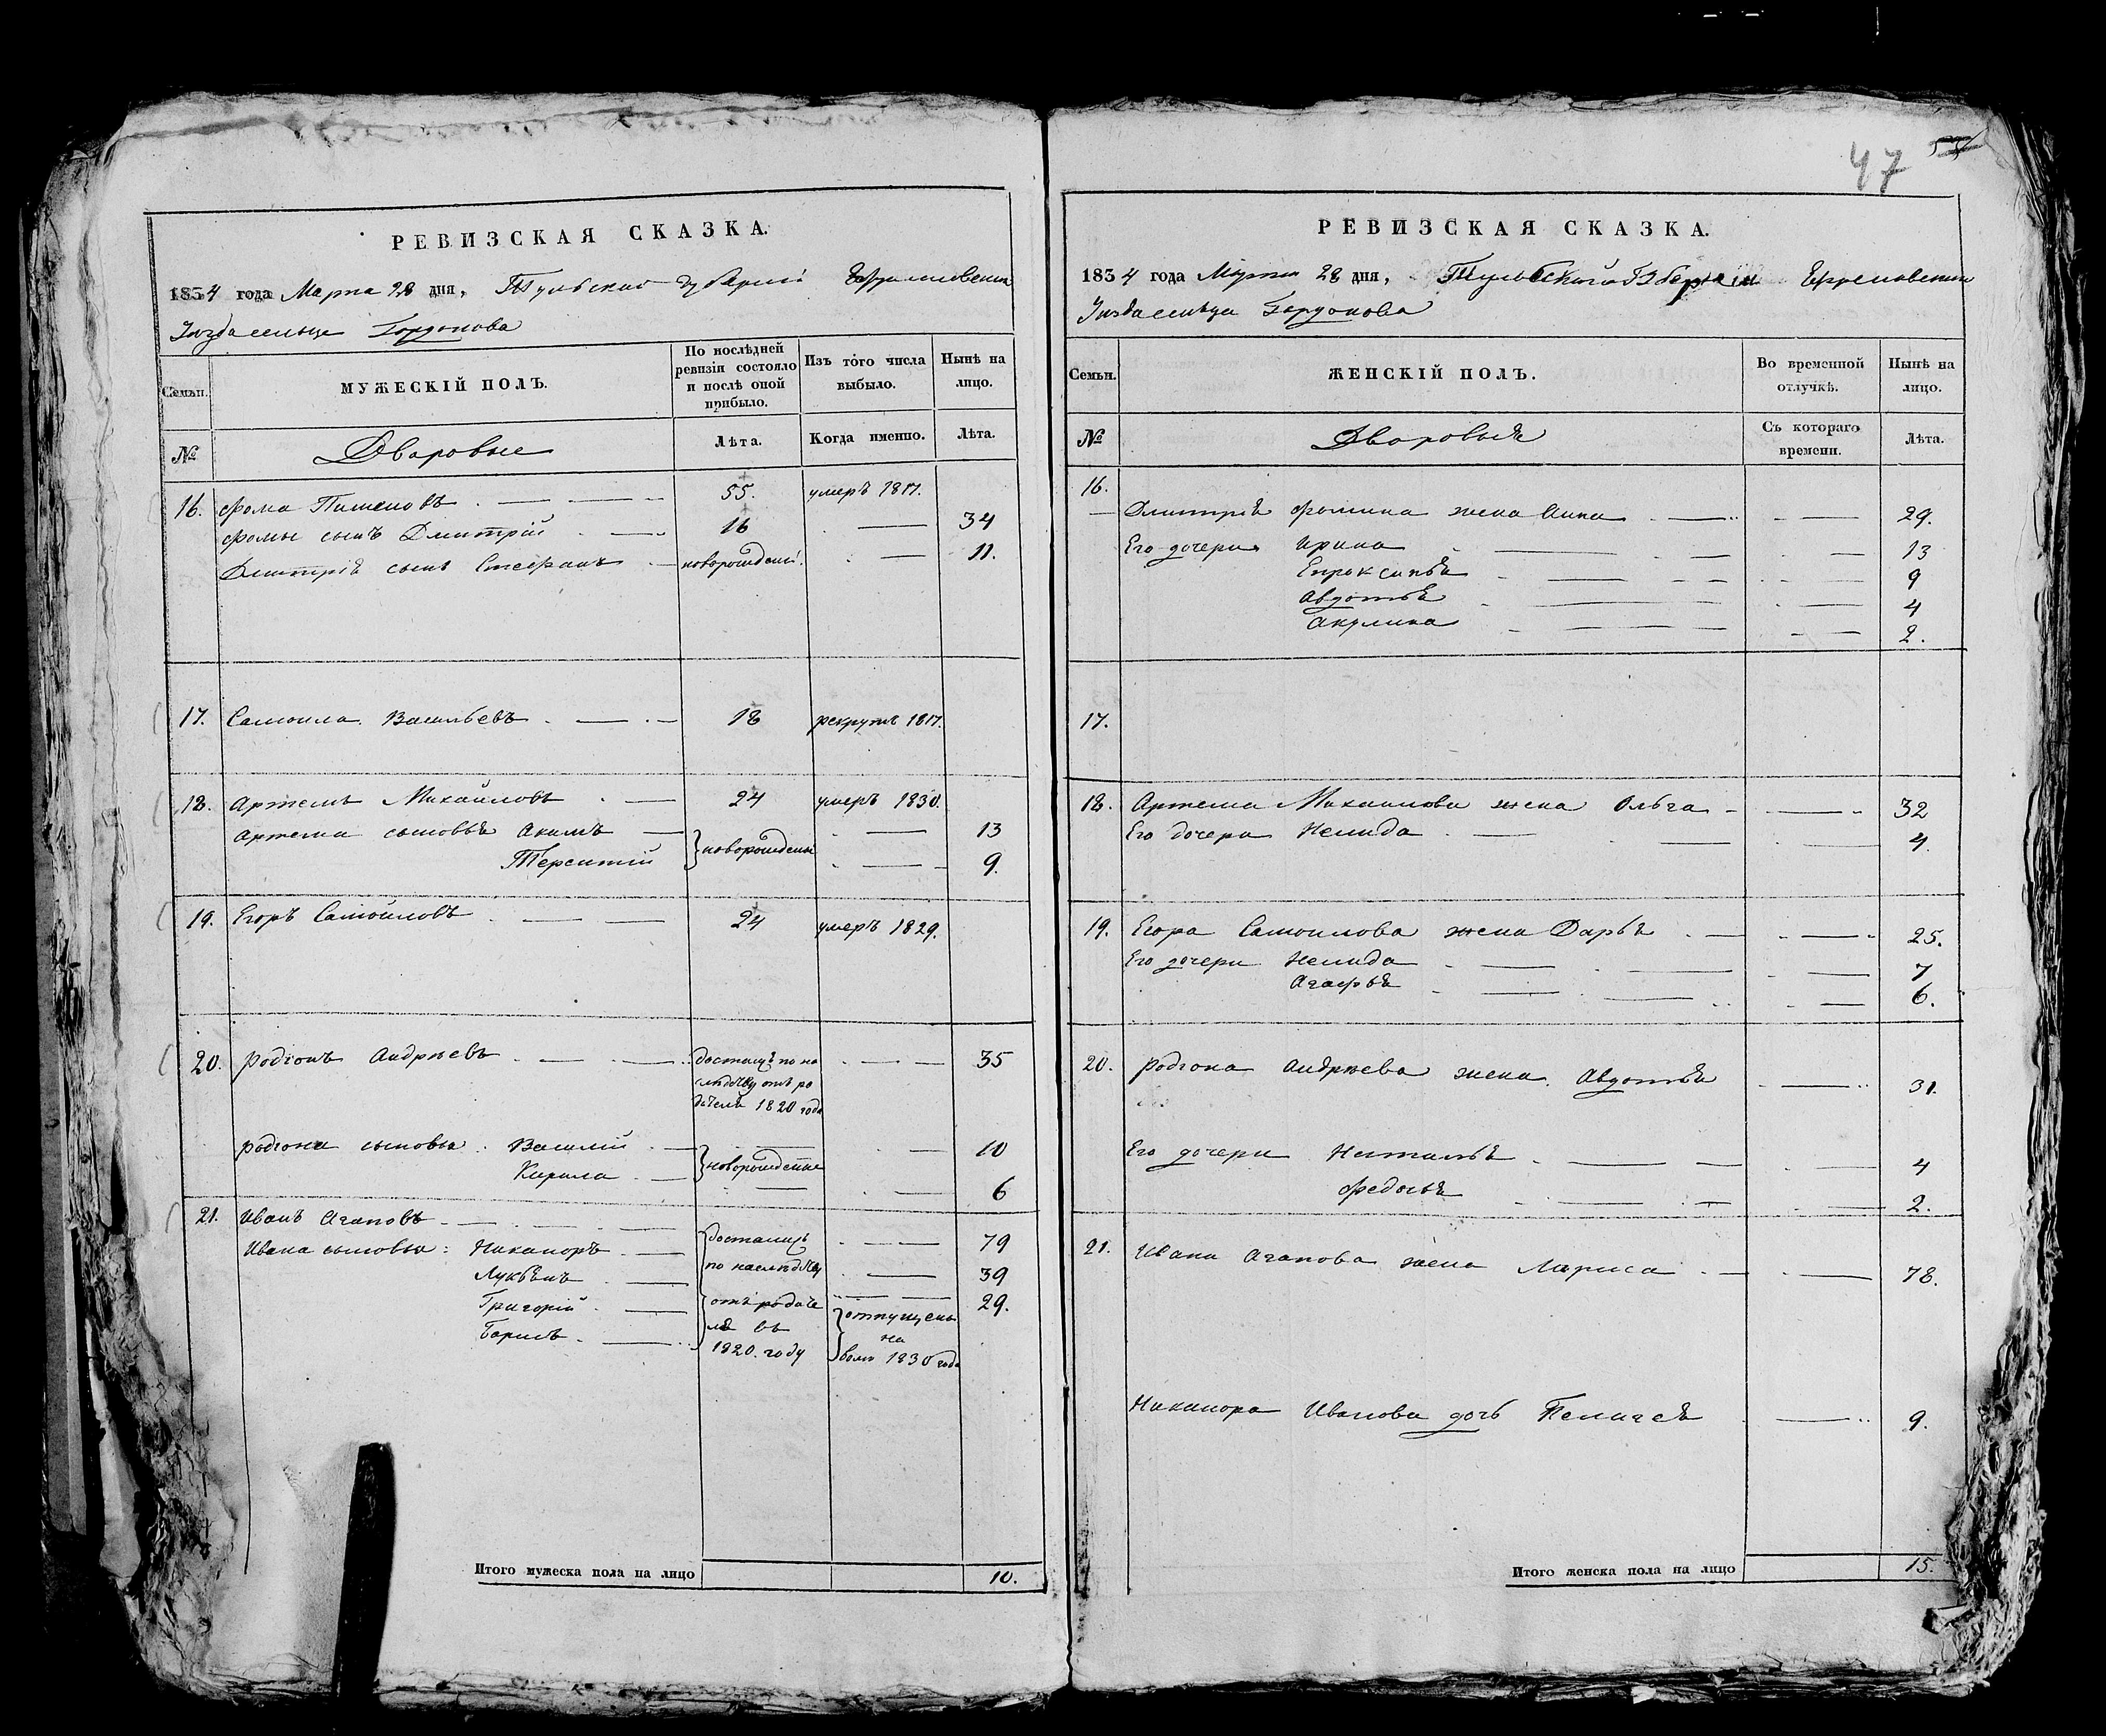 47
РЕВИЗСКАЯ СКАЗКА.
1834 года Марта 28 дня, Тульской губернiи Ефремовскаго
Уѣзда сельца Гордонова
Семьи.
МУЖЕСКІЙ ПОЛЪ.
По послѣдней ревизіи состояло и послѣ оной прибыло.
Изъ того числа выбыло.
Нынѣ на лицо.
№
Дворовые
Лѣта.
Когда именно.
Лѣта.
16. Фома Пименовъ 55. умеръ 1817.
Фомы сынъ Дмитрій 16 34
Дмитрiя сынъ Стефанъ новорожденый. 11.
17. Самоила Васильевъ 18 рекрутъ 1817.
18. Артемъ Михайловъ 24 умеръ 1830.
Артема сыновья Акимъ новорождены 13
Терентій 9.
19. Егоръ Самойловъ 24 умеръ 1829.
20. Родіонъ Андреевъ достался по на 35
слѣдству отъ ро
дителя 1820 года
Родiона сыновья. Василій новорожденые 10
Кирила 6
21. Иванъ Агаповъ
Ивана сыновья: Никаноръ достались 79
Лукьянъ по наслѣдству 39
Григорій отъ родите 29.
Борисъ ля въ отпущены
1820. году на
волю 1830 года
Итого мужеска пола на лицо 10.
РЕВИЗСКАЯ СКАЗКА.
1834 года Марта 28 дня, Тульской Губернiи Ефремовскаго
Уѣзда сельца Гордонова
Семьи.
ЖЕНСКІЙ ПОЛЪ.
Во временной отлучкѣ.
Нынѣ на лицо.
№
Дворовыя
Съ котораго времени.
Лѣта.
16.
Дмитрiя Фомина жена Анна 29.
Его дочери Ирина 13
Епраксинья 9
Авдотья 4
Акулина 2.
17.
18. Артема Михаилова жена Ольга 32
Его дочери Немида 4.
19. Егора Самоилова жена Дарья 25.
Его дочери Немида 7
Агафья 6.
20. Родiона Андреева жена Авдотья 31.
Его дочери Наталья 4
Федосья 2.
21. Ивана Агапова жена Лариса 78.
Никанора Иванова дочь Пелагея 9.
Итого женска пола на лицо 15.